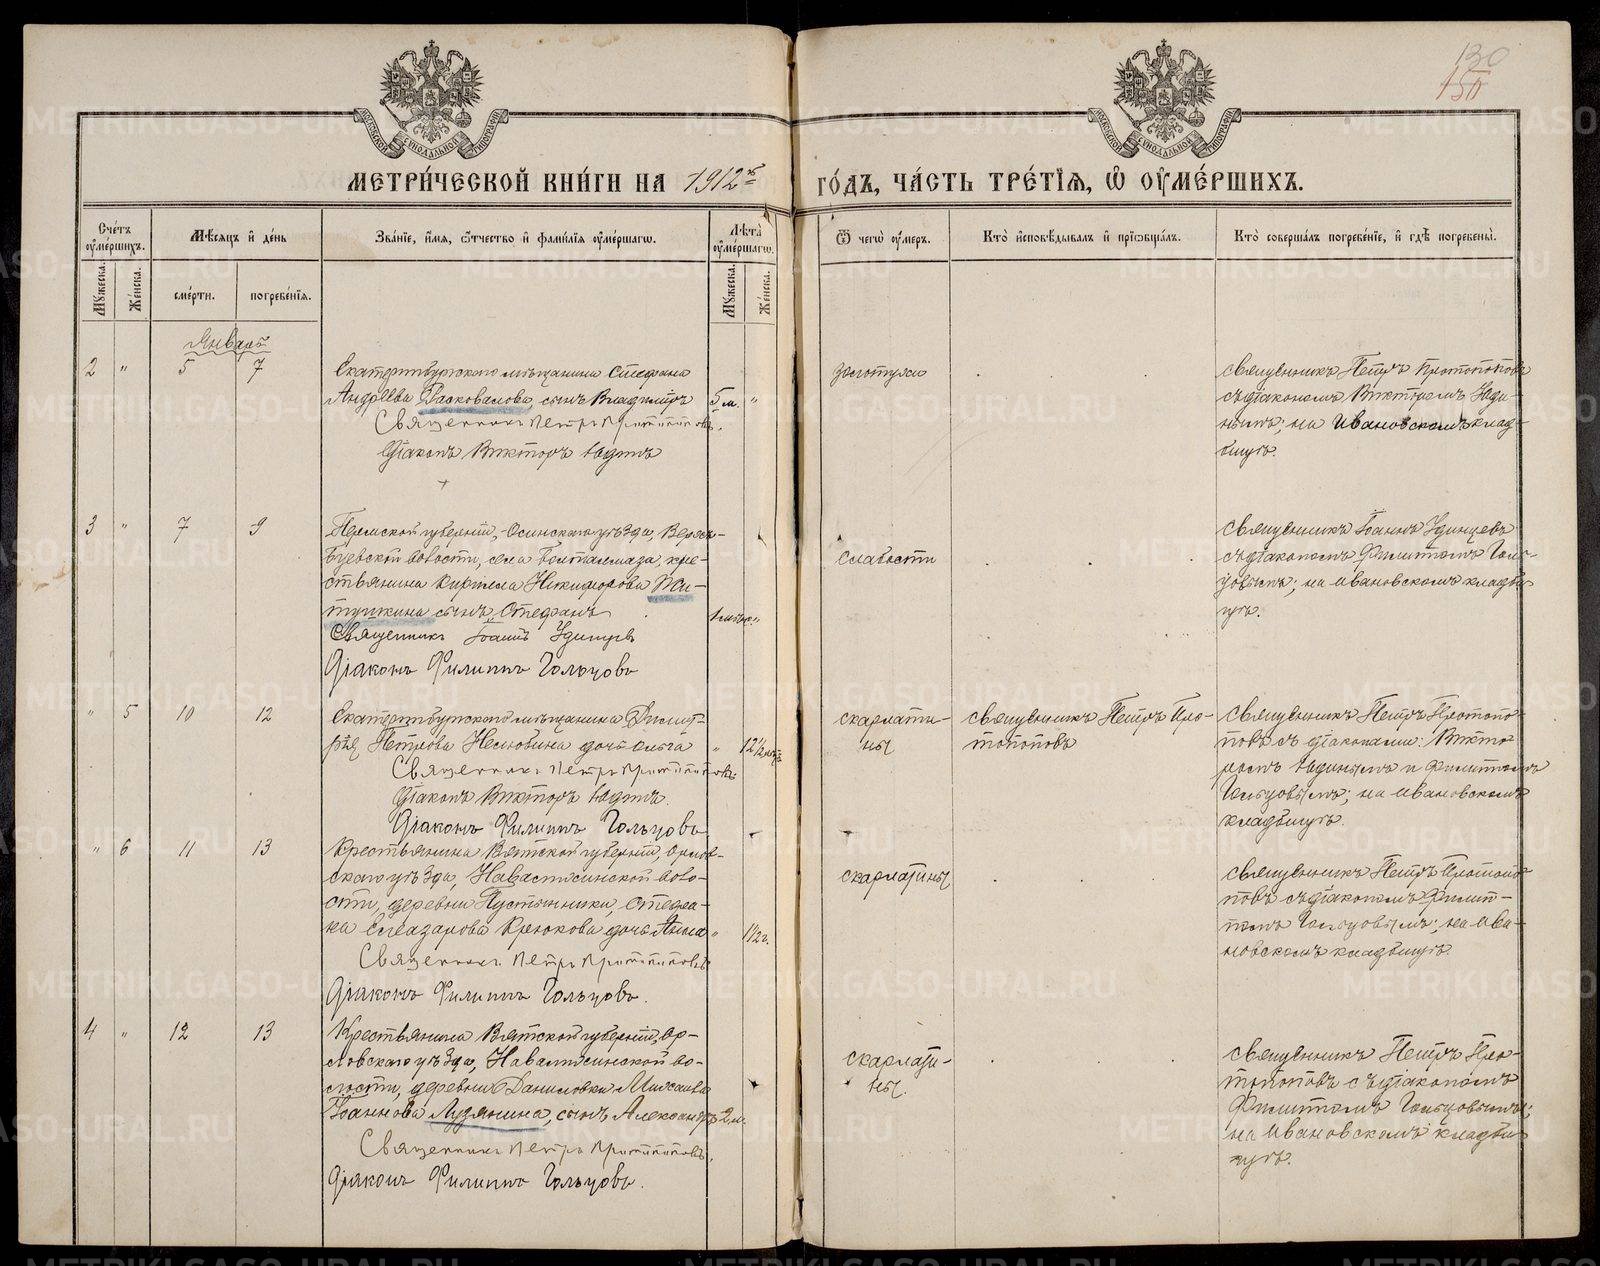 130
150
МОСКОВСКОЙ СѴНОДАЛЬНОЙ ТИПОГРАФІИ
МОСКОВСКОЙ СѴНОДАЛЬНОЙ ТИПОГРАФІИ
МЕТРИ́ЧЕСКОЙ КНИ́ГИ НА 1912 го́дъ, ча́сть тре́тїѧ, ѡ҆ ᲂу҆ме́ршихъ.
Сче́тъ ᲂу҆ме́ршихъ.
Мꙋжеска.
Же́нска.
Мѣ́сѧцъ и҆ де́нь
сме́рти.
погребе́нїѧ.
Зва́нїе, и҆́мѧ, ѻ҆́тчество и҆ фами́лїѧ ᲂу҆ме́ршагѡ.
Лѣ́та ᲂу҆ме́ршагѡ.
Мꙋжеска.
Же́нска.
Ѿ чегѡ̀ ᲂу҆́меръ.
Кто̀ и҆сповѣ́дывалъ и҆ прїѡбща́лъ.
Кто̀ соверша́лъ погребе́нїе, и҆ гдѣ̀ погребены̀.
Январь
2 " 5 7
Екатеринбургскаго мѣщанина Стефана
Андреева Расковалова, сынъ Владимiръ 5 м. "
Священникъ Петръ Протопоповъ.
Дiаконъ Викторъ Юдинъ
золотухи
священникъ Петръ Протопоповъ
съ дiакономъ Викторомъ Юди-
нымъ; на Ивановскомъ клад-
бищѣ.
3 " 7 9
Пермской губернiи, Осинскаго уѣзда,
волости, села крe-
стьянина Кирилла Никифорова Ми-
тушкина сынъ Стефанъ 1 мѣс. "
Священникъ Iоаннъ Удинцевъ
Дiаконъ Филиппъ Гольцовъ
слабости
священникъ Iоаннъ Удинцевъ
съ дiакономъ Филиппомъ Голь-
цовымъ; на Ивановскомъ кладби-
щѣ.
" 5 10 12
Екатеринбургскаго мѣщанина Димит-
рiя Петрова дочь Ольга " 12½
Священникъ Петръ Протопоповъ.
Дiаконъ Викторъ Юдинъ.
Дiаконъ Филиппъ Гольцовъ
скарлати-
ны
священникъ Петръ Про-
топоповъ
священникъ Петръ Протопо-
повъ съ дiаконами: Викто-
ромъ Юдинымъ и Филиппомъ
Гольцовымъ; на Ивановскомъ
кладбищѣ.
" 6 11 13
Крестьянина Вятской губернiи, Орлов-
скаго уѣзда, воло-
сти, деревни Пустынники, Стефа-
на Елеазарова Крюкова дочь Анна " 1½ г.
Священникъ Петръ Протопоповъ
Дiаконъ Филиппъ Гольцовъ.
скарлатины
священникъ Петръ Протопо-
повъ съ дiакономъ Филип-
помъ Гольцовымъ; на Ива-
новскомъ кладбищѣ.
4 " 12 13
Крестьянина Вятской губернiи, Ор-
ловскаго уѣзда, во-
лости, деревни Даниловки Михаила
Iоаннова Лузянина, сынъ Александръ 2 м.
Священникъ Петръ Протопоповъ.
Дiаконъ Филиппъ Гольцовъ.
скарлати-
ны.
священникъ Петръ Про-
топоповъ съ дiакономъ
Филиппомъ Гольцовымъ;
на Ивановскомъ кладби-
щѣ.
METRIKI.GASO-URAL.RU